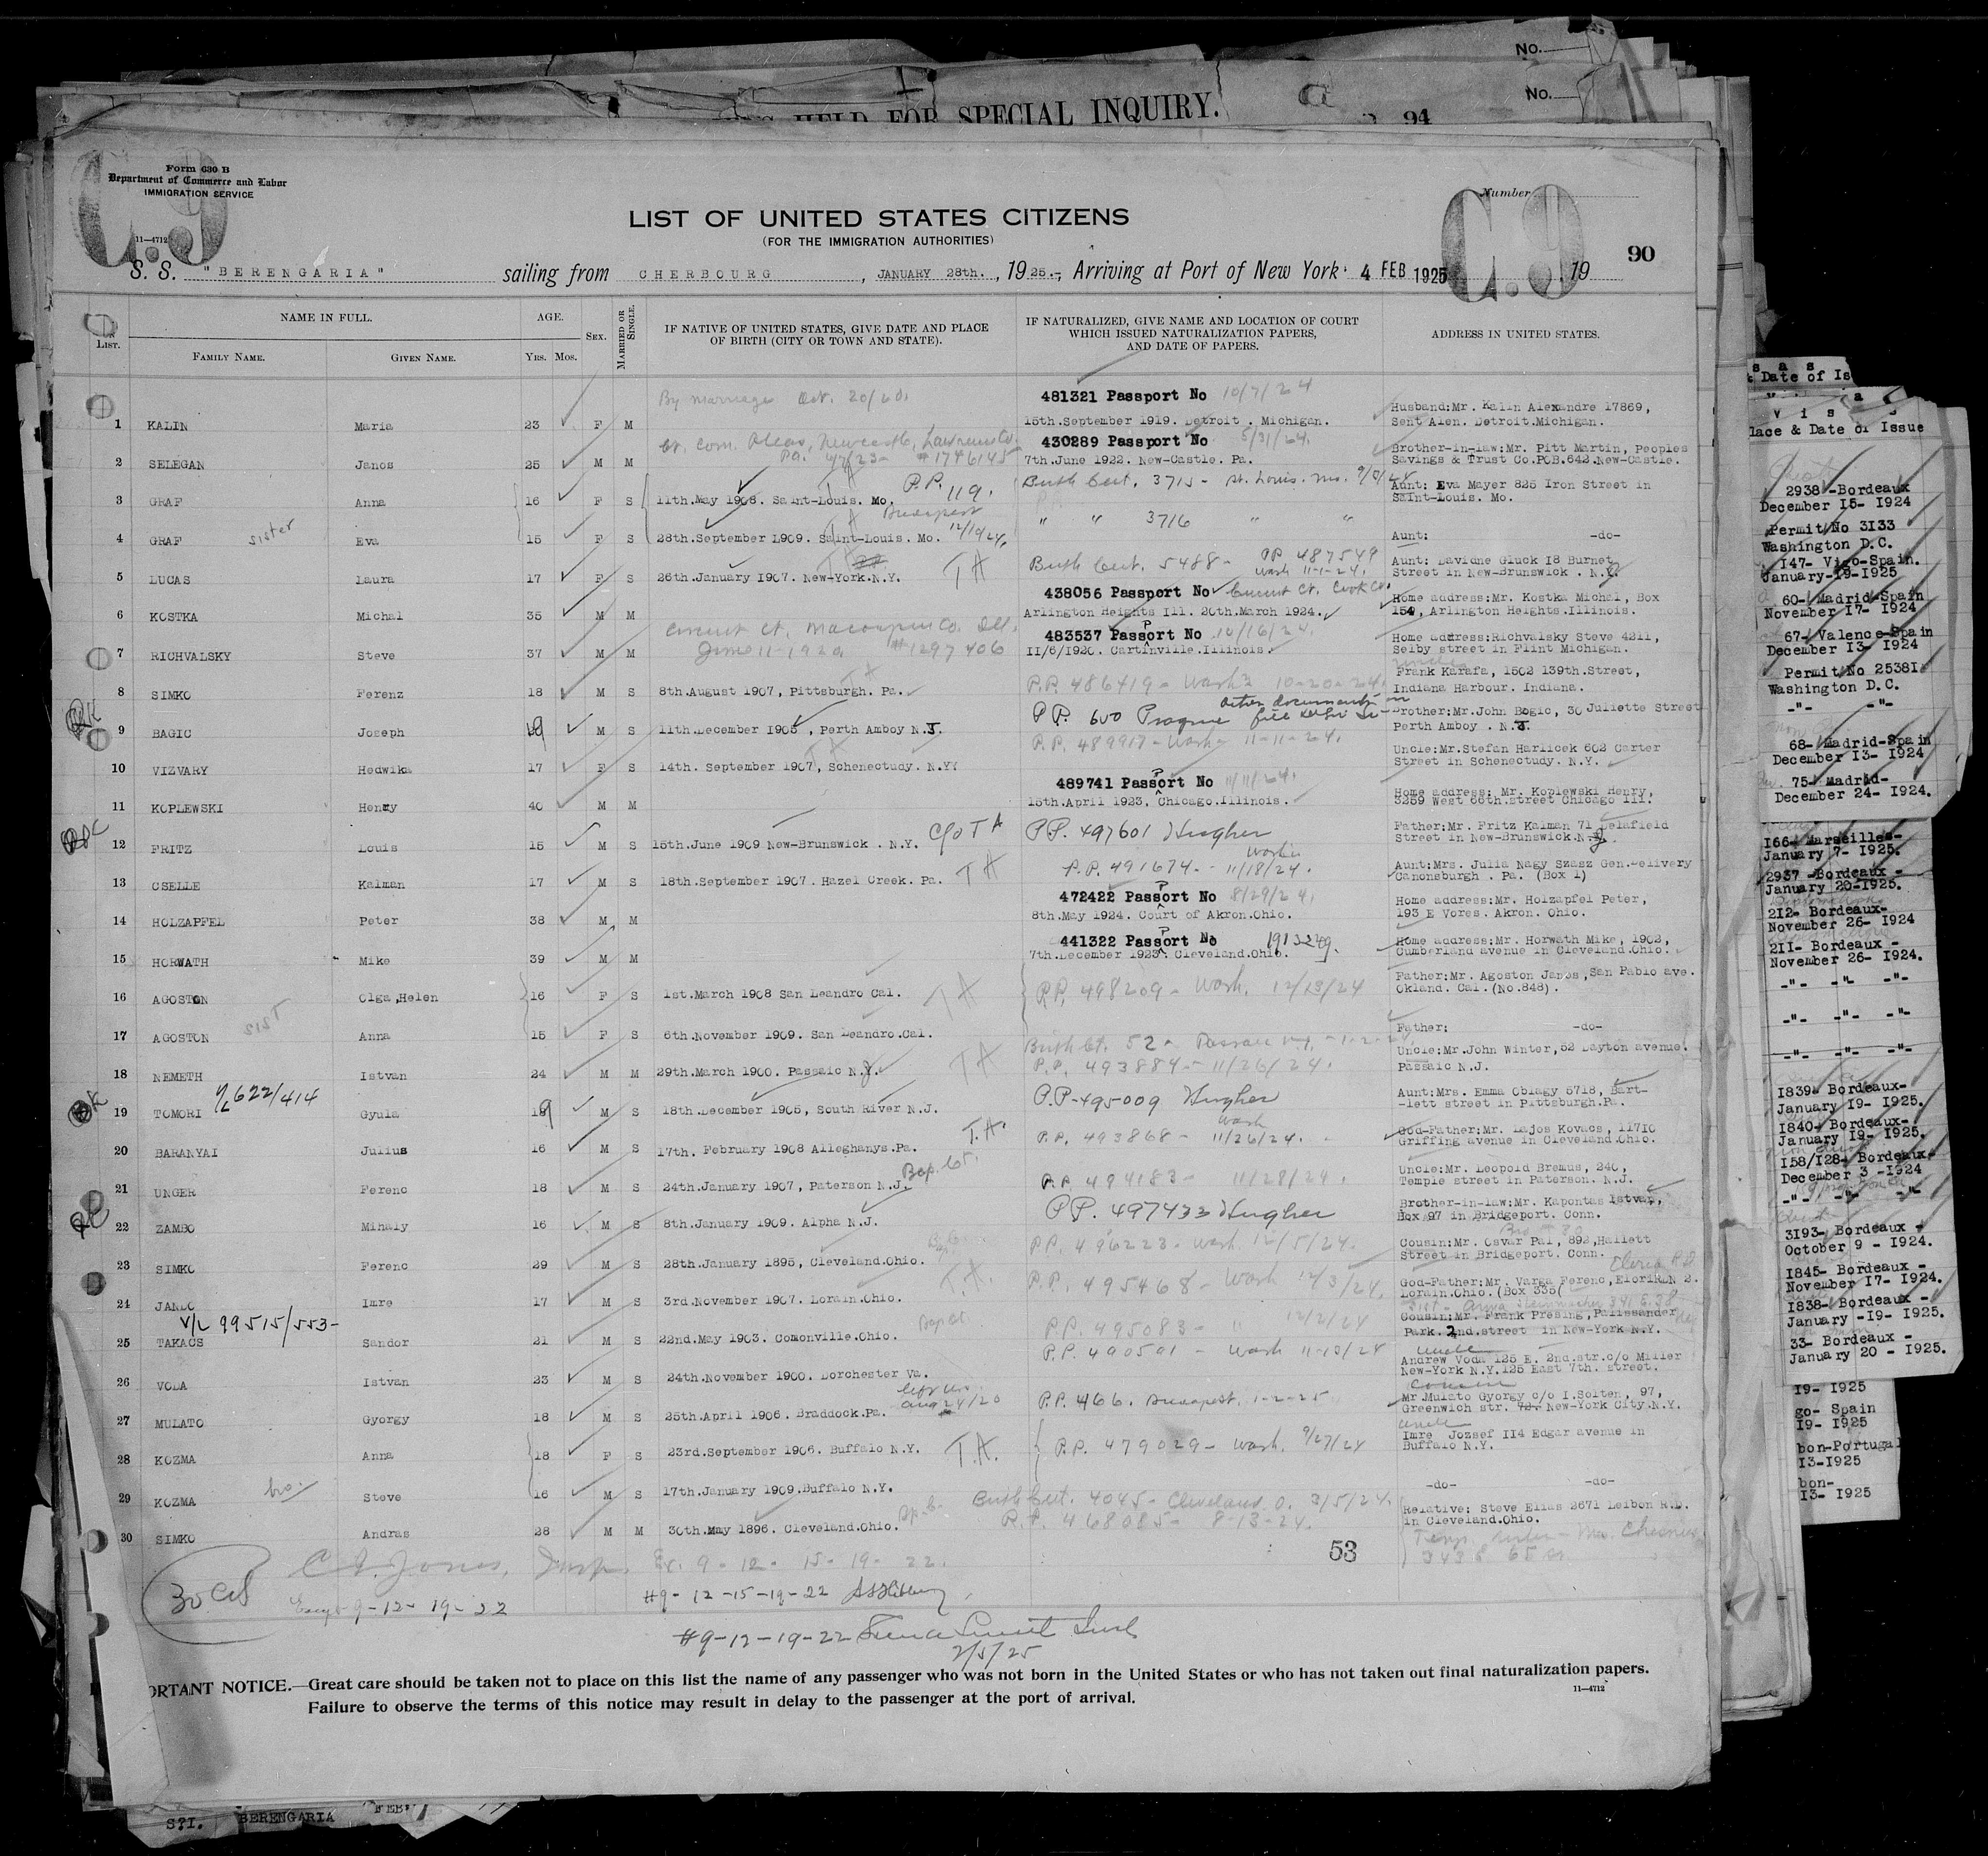 No.
No.
HELD FOR SPECIAL INQUIRY.
94
Form 630 B
Department of Commerce and Labor
IMMIGRATION SERVICE
11—4712
C.9
Number
C.9
LIST OF UNITED STATES CITIZENS
(FOR THE IMMIGRATION AUTHORITIES)
90
S. S. "BERENGARIA" sailing from CHERBOURG, JANUARY 28th., 1925.-, Arriving at Port of New York 4 FEB 1925 19
List. NAME IN FULL. AGE. Sex. Married or Single. IF NATIVE OF UNITED STATES, GIVE DATE AND PLACE OF BIRTH (CITY OR TOWN AND STATE). IF NATURALIZED, GIVE NAME AND LOCATION OF COURT WHICH ISSUED NATURALIZATION PAPERS, AND DATE OF PAPERS. ADDRESS IN UNITED STATES.
Family Name. Given Name. Yrs. Mos.
By marriage Oct. 20/20. 481321 Passport No 10/7/24
1 KALIN Maria 23 F M 15th.September 1919. Detroit . Michigan. Husband:Mr. Kalin Alexandre 17869, Sent Alen. Detroit.Michigan.
Ct. Com. Pleas, Newcastle, Lawrence Co. Pa. #1746145 430289 Passport No 5/31/24.
2 SELEGAN Janos 25 M M 7th.June 1922. New-Castle. Pa. Brother-in-law:Mr. Pitt Martin, Peoples Savings & Trust Co.POB.642.New-Castle.
3 GRAF Anna 16 F S 11th.May 1908. Saint-Louis. Mo. P.P. 119. Birth Cert. 3715 - St. Louis. Mo. Aunt: Eva Mayer 825 Iron Street in Saint-Louis. Mo.
Budapest 12/19/24.
4 GRAF sister Eva 15 F S 28th.September 1909. Saint-Louis. Mo. " " 3716 " " Aunt: -do-
5 LUCAS Laura 17 F S 26th.January 1907. New-York.N.Y. TA Birth Cert. 5488 - PP 487549 Wash 11-1-24. Aunt: Davidne Gluck 18 Burnet Street in New-Brunswick . N.Y.
438056 Passport No Circuit Ct. Cook Co.
6 KOSTKA Michal 35 M M Arlington Heights Ill. 20th.March 1924. Home address:Mr. Kostka Michal, Box 154, Arlington Heights.Illinois.
Circuit Ct. Macoupin Co. Ill. June 11-1920 #1297406 483537 Passport No 10/16/24.
7 RICHVALSKY Steve 37 M M II/6/1920. Cartinville.Illinois. Home address:Richvalsky Steve 4211, Selby street in Flint Michigan.
8 SIMKO Ferenz 18 M S 8th.August 1907, Pittsburgh. Pa. P.P. 486419 - Wash. 10-20-24. uncle Frank Karafa, 1502 139th.Street, Indiana Harbour. Indiana.
9 BAGIC Joseph 19 M S 11th.December 1905 , Perth Amboy N.J. PP. 600 Prague other documents Brother:Mr.John Bogic, 30 Juliette Street Perth Amboy . N.J.
10 VIZVARY Hedwika 17 F S 14th. September 1907, Schenectudy. N.Y. P.P. 489917 - Wash - 11-11-24. Uncle:Mr.Stefan Harlicek 602 Carter Street in Schenectudy. N.Y.
489741 Passport No 11/11/24.
11 KOPLEWSKI Henry 40 M M 15th.April 1923, Chicago.Illinois. Home address: Mr. Koplewski Henry, 3259 West 66th.street Chicago Ill.
12 FRITZ Louis 15 M S 15th.June 1909 New-Brunswick . N.Y. C/o TA P.P. 497601 Hugher Father:Mr. Fritz Kalman 71 Delafield Street in New-Brunswick.N.J.
13 CSELLE Kalman 17 M S 18th.September 1907. Hazel Creek. Pa. TA P.P. 491674 - Wash 11/18/24. Aunt:Mrs. Julia Nagy Szasz Gen.Delivery Canonsburgh . Pa. (Box 1)
472422 Passport No 8/29/24.
14 HOLZAPFEL Peter 38 M M 8th.May 1924. Court of Akron.Ohio. Home address:Mr. Holzapfel Peter, 193 E Vores. Akron. Ohio.
441322 Passport No 1913249.
15 HORWATH Mike 39 M M 7th.December 1923. Cleveland.Ohio. Home address:Mr. Horwath Mike, 1902, Cumberland avenue in Cleveland.Ohio.
16 AGOSTON Olga,Helen 16 F S 1st.March 1908 San Leandro Cal. TA P.P. 498209 - Wash. 12/13/24 Father:Mr. Agoston Janos,San Pablo ave. Okland. Cal.(No.848).
17 AGOSTON sist Anna 15 F S 6th.November 1909. San Leandro.Cal. Father: -do-
Birth Ct. 52 - Passaic
18 NEMETH Istvan 24 M M 29th.March 1900. Passaic N.J. TA P.P. 493884 - 11/26/24. Uncle:Mr.John Winter,52 Dayton avenue. Passaic N.J.
V/L 622/414
19 TOMORI Gyula 19 M S 18th.December 1905, South River N.J. P.P. 495009 Hugher Aunt:Mrs. Emma Oblagy 5718, Bart- -lett street in Pittsburgh.Pa.
20 BARANYAI Julius 16 M S 17th. February 1908 Alleghanys.Pa. T.A. P.P. 493868 - Wash 11/26/24. God-Father:Mr. Lajos Kovacs, 11710 Griffing avenue in Cleveland.Ohio.
21 UNGER Ferenc 18 M S 24th.January 1907, Paterson N.J. Bap. Ct. P.P. 494183 - 11/28/24. Uncle:Mr. Leopold Bremus, 240, Temple street in Paterson. N.J.
22 ZAMBO Mihaly 16 M S 8th.January 1909. Alpha N.J. P.P. 497433 Hugher Brother-in-law:Mr. Kapontas Istvan, Box 97 in Bridgeport. Conn.
23 SIMKO Ferenc 29 M S 28th.January 1895, Cleveland.Ohio. P.P. 496223 - Wash 12/5/24. Cousin:Mr. Csvar Pal, 892,Hallett Street in Bridgeport. Conn.
24 JANDO Imre 17 M S 3rd.November 1907. Lorain.Ohio. T.A. P.P. 495468 - Wash 12/3/24. God-Father:Mr. Varga Ferenc,EloriRDN 2. Lorain.Ohio.(Box 335(
V/L 99515/553-
25 TAKACS Sandor 21 M S 22nd.May 1903. Comonville.Ohio. Bap Ct P.P. 495083 - " 12/2/24 Cousin:Mr. Frank Presing,Palissander Park. 2nd.street in New-York N.Y.
26 VODA Istvan 23 M S 24th.November 1900. Dorchester Va. P.P. 490501 - Wash 11-13/24 uncle Andrew Voda 125 E. 2nd.str.c/o Miller New-York N.Y.125 East 7th. street.
27 MULATO Gyorgy 18 M S 25th.April 1906. Braddock.Pa. Aug 24/20 P.P. 466. Budapest. 1-2-25 cousin Mr.Mulato Gyorgy c/o I.Solten, 97, Greenwich str. New-York City.N.Y.
28 KOZMA Anna 18 F S 23rd.September 1906. Buffalo N.Y. T.A. P.P. 479029 - Wash. 9/27/24 uncle Imre Jozsef 114 Edgar avenue in Buffalo N.Y.
29 KOZMA bro. Steve 16 M S 17th.January 1909.Buffalo N.Y. -do- -do-
Birth Cert. 4045 - Cleveland O. 3/5/24.
30 SIMKO Andras 28 M M 30th.May 1896. Cleveland.Ohio. P.P. 468085 - 8-13-24. Relative: Steve Elias 2671 Leibon R.D. in Cleveland.Ohio.
53
C. A. Jones, Insp. Ex. 9 - 12 - 15 - 19 - 22.
30 Cits
Except 9-12-19-22
#9-12-15-19-22
#9-12-19-22
2/5/25
ORTANT NOTICE.—Great care should be taken not to place on this list the name of any passenger who was not born in the United States or who has not taken out final naturalization papers.
Failure to observe the terms of this notice may result in delay to the passenger at the port of arrival.
11—4712
S?I. BERENGARIA FEB
s a s
& Date of Is
V i s a
lace & Date of Issue
2938 -Bordeaux
December I5- I924
Permit No 3I33
Washington D.C.
I47- Vigo-Spain.
January-I9-I925
60- Madrid-Spain
November I7- I924
67- Valence-Spain
December I3- I924
Permit No 2538I
Washington D.C.
-"- -"-
68- Madrid-Spain
December I3- I924
75- Madrid-
December 24- I924.
I66- Marseilles-
January 7- I925.
2937 -Bordeaux -
January 20-I925.
2I2- Bordeaux-
November 26- I924
2II- Bordeaux -
November 26- I924.
-"- -"- -"-
-"- -"- -"-
-"- -"- -"-
I839- Bordeaux-
January I9- I925.
I840- Bordeaux-
January I9- I925.
I58/I28- Bordeaux-
December 3 -I924
-"- -"- -"-
3I93- Bordeaux -
October 9 - I924.
I845- Bordeaux -
November I7- I924.
I838- Bordeaux -
January -I9- I925.
33- Bordeaux -
January 20 - I925.
I9- I925
go- Spain
I9- I925
bon-Portugal
I3-I925
bon-
I3- I925